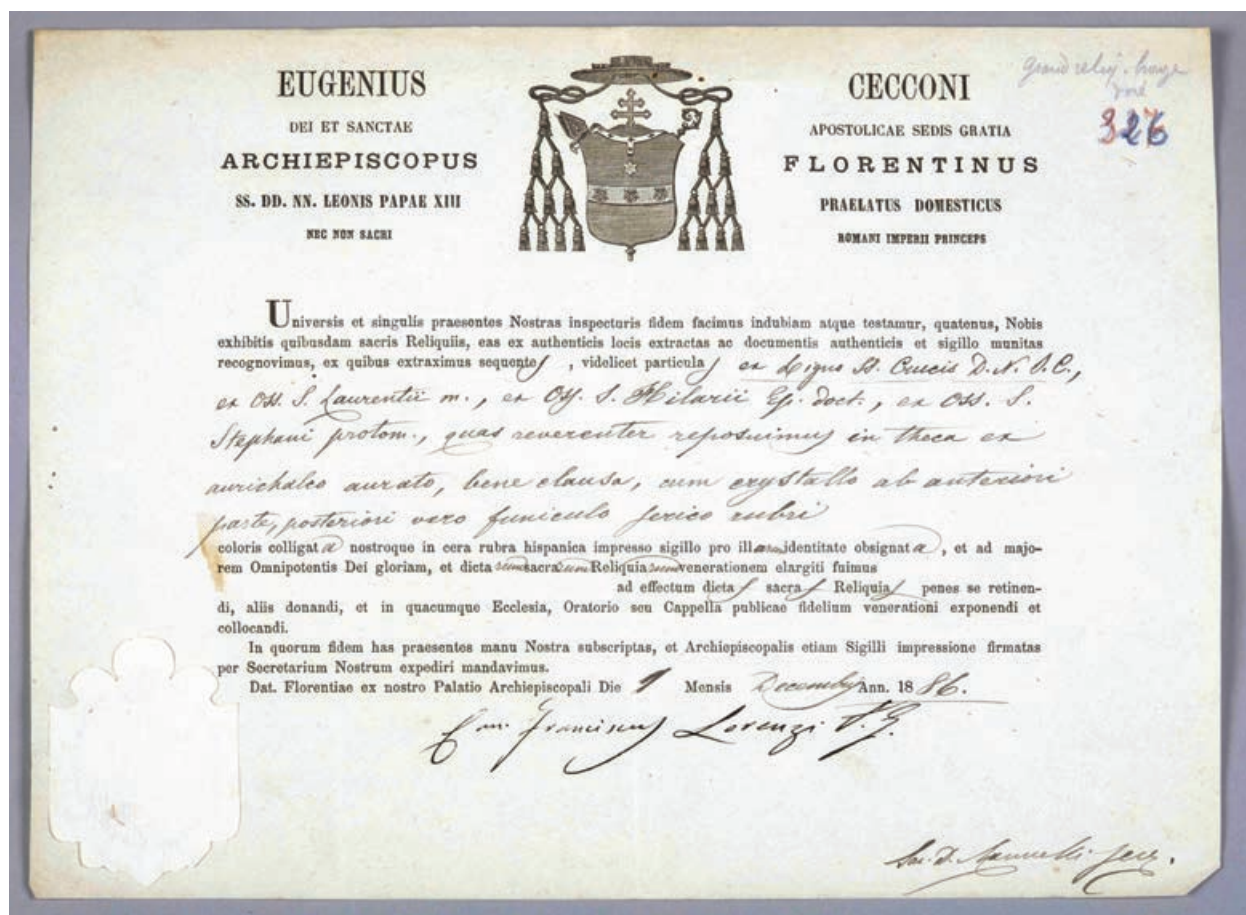 EUGENIUS CECCONI
DEI ET SANCTAE APOSTOLICAE SEDIS GRATIA
ARCHIEPISCOPUS FLORENTINUS
SS. DD. NN. LEONIS PAPAE XIII PRAELATUS DOMESTICUS
NEC NON SACRI ROMANI IMPERII PRINCEPS
Grand reliq.
326
Universis et singulis praesentes Nostras inspecturis fidem facimus indubiam atque testamur, quatenus, Nobis
exhibitis quibusdam sacris Reliquiis, eas ex authenticis locis extractas ac documentis authenticis et sigillo munitas
recognovimus, ex quibus extraximus sequentes, videlicet particulas ex Ligno SS. Crucis D. N. J. C.,
ex Oss. S. Laurentii m., ex Oss. S. Hilarii Ep. doct., ex Oss. S.
Stephani protom., quas reverenter reposuimus in theca ex
aurichalco aurato, bene clausa, cum crystallo ab anteriori
parte, posteriori vero funiculo serico rubri
coloris colligata nostroque in cera rubra hispanica impresso sigillo pro illarum identitate obsignata, et ad majo-
rem Omnipotentis Dei gloriam, et dictarum sacrarum Reliquiarum venerationem elargiti fuimus
ad effectum dictas sacras Reliquias penes se retinen-
di, aliis donandi, et in quacumque Ecclesia, Oratorio seu Cappella publicae fidelium venerationi exponendi et
collocandi.
In quorum fidem has praesentes manu Nostra subscriptas, et Archiepiscopalis etiam Sigilli impressione firmatas
per Secretarium Nostrum expediri mandavimus.
Dat. Florentiae ex nostro Palatio Archiepiscopali Die 1 Mensis Decembris Ann. 1886.
Can. Franciscus Lorenzi V. G.